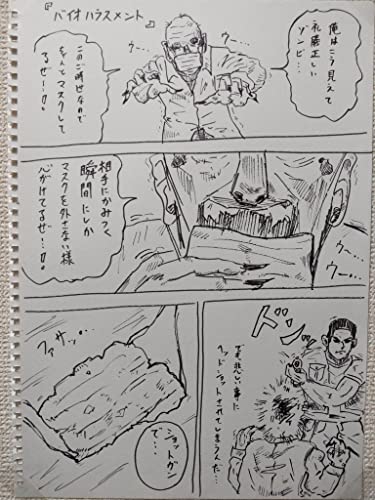 『バイオハラスメント』
俺はこう見えて
礼儀正しい
ゾンビ…
ウー…
ウー…
このご時世なので
ちゃんとマスクして
るぜ…!!
相手にかみつく
瞬間にしか
マスクを外さない様
心がけてるぜ…!!
ウー…
ウー…
ドンッ
でも悲しい事に
ヘッドショットされてしまうんだ…
ショットガン
で…
ファサッ…